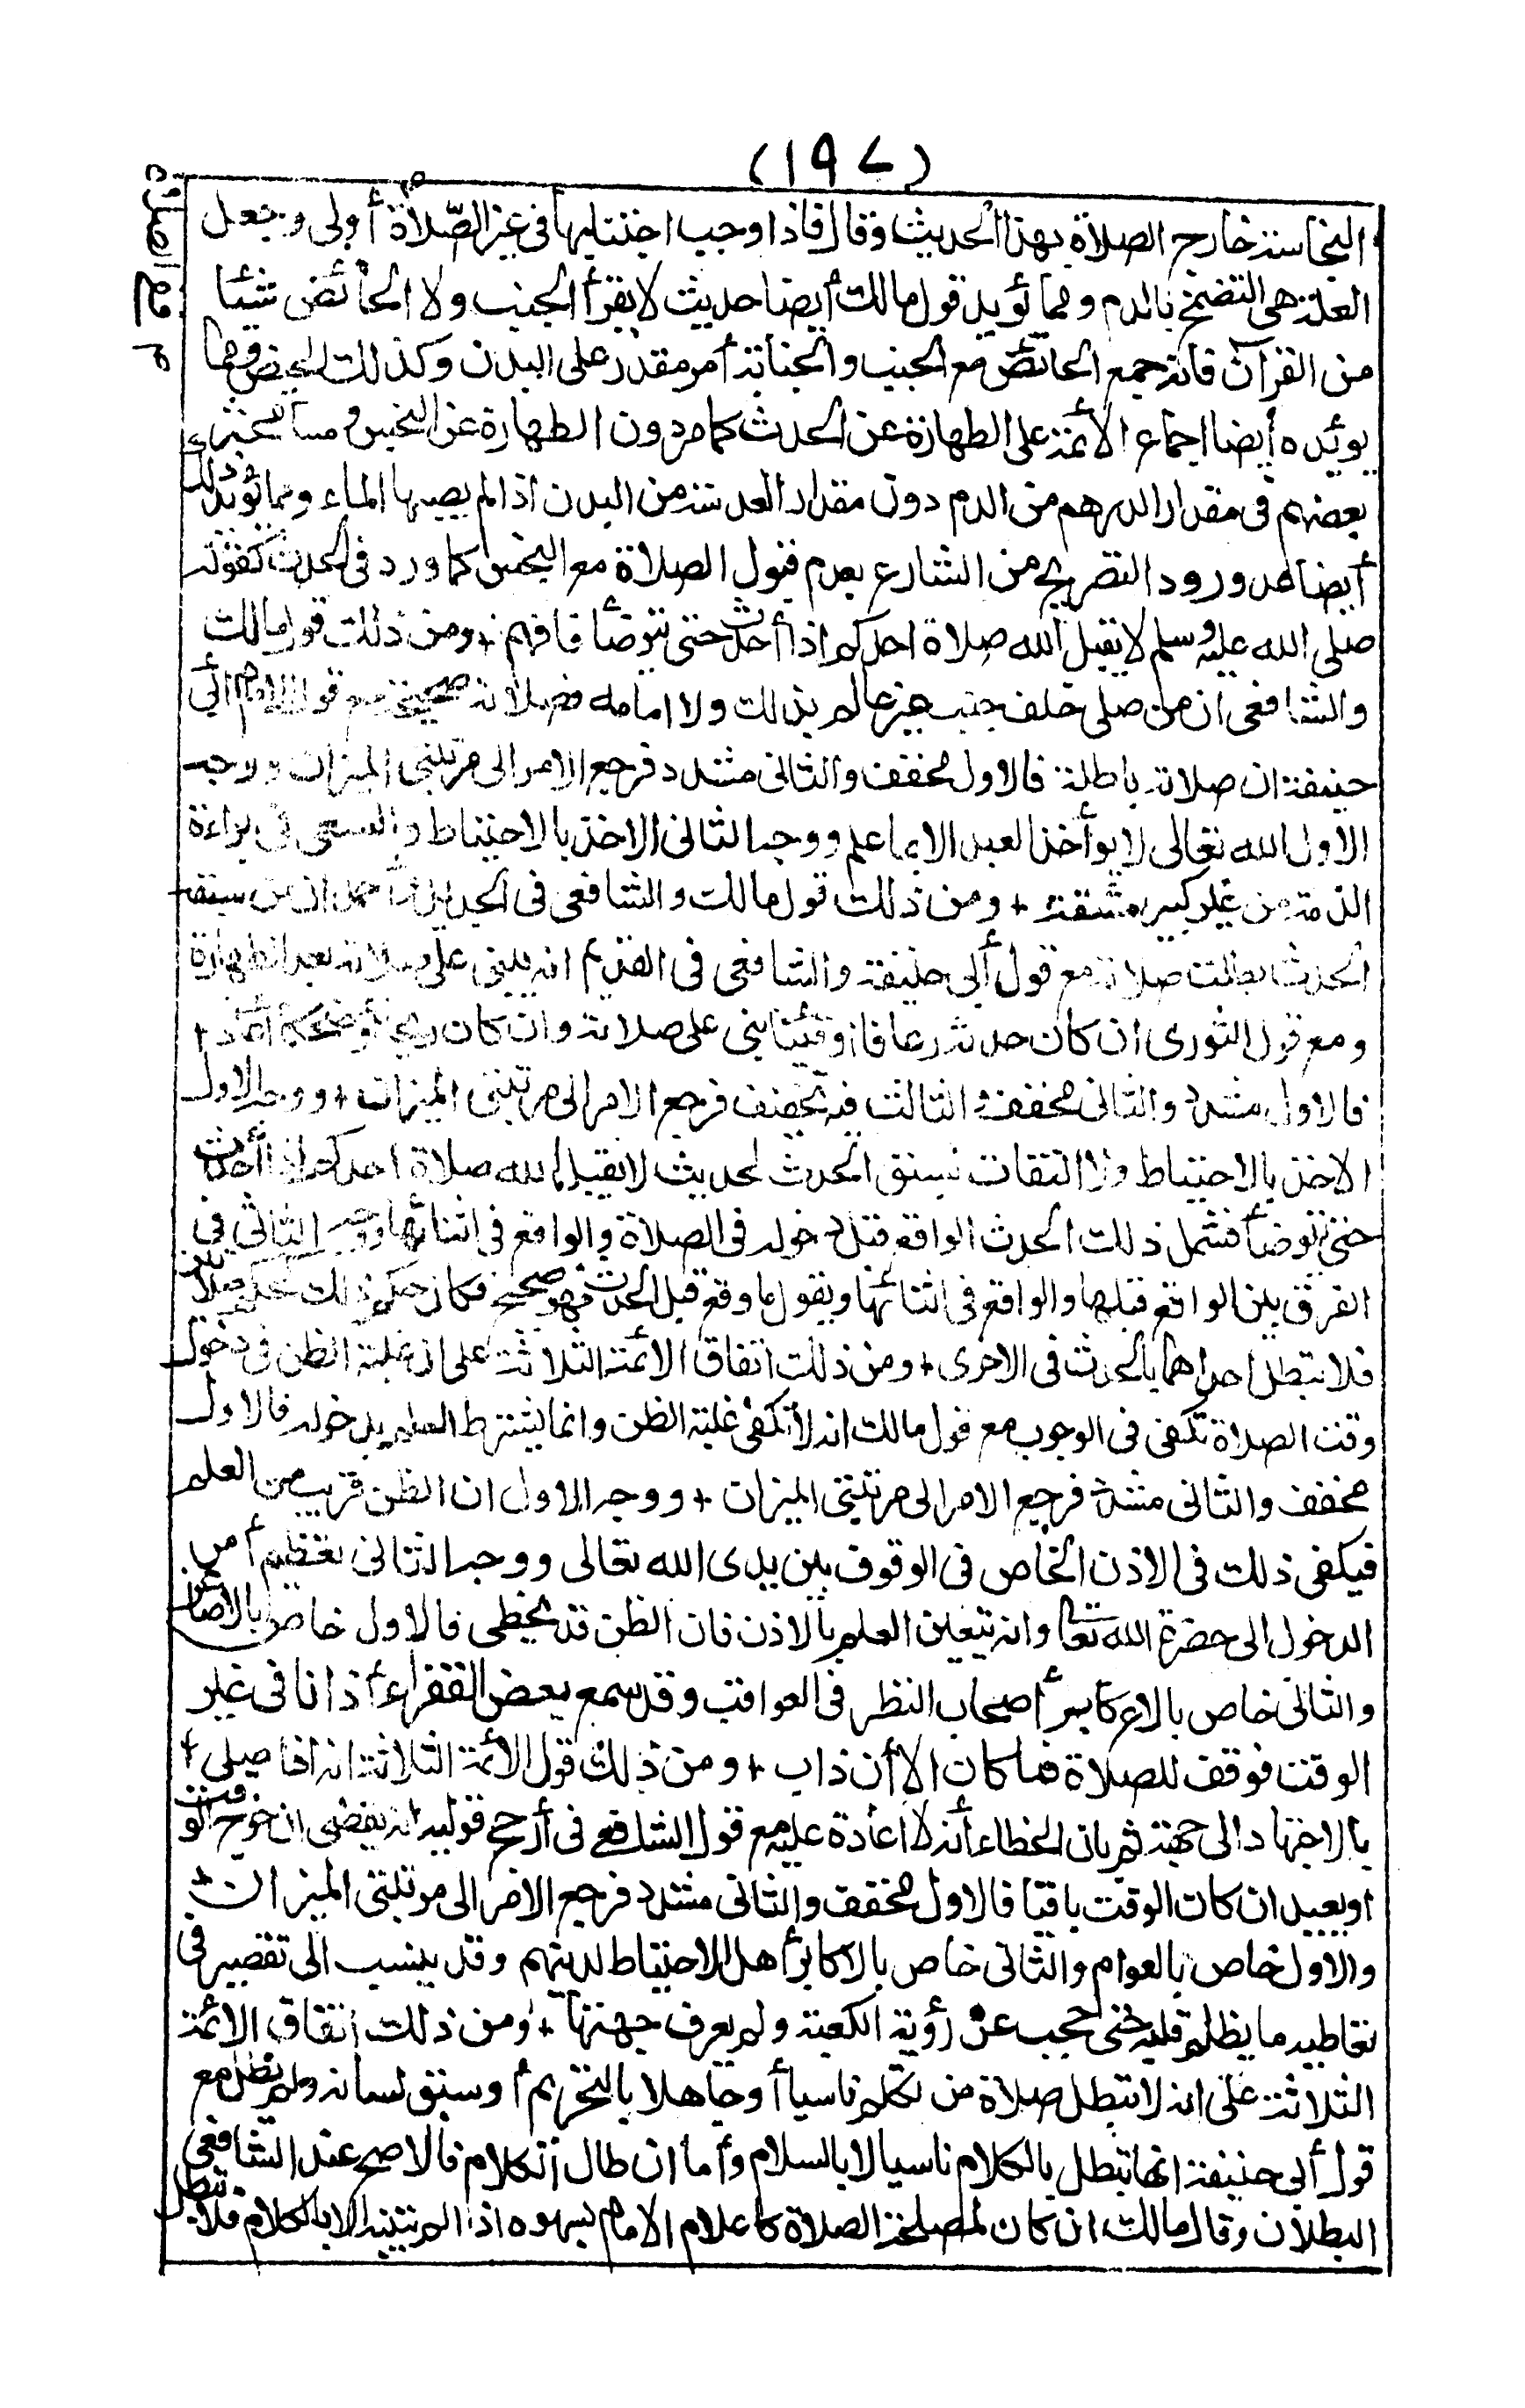 (١٩٧)
النجاسة خارج الصلاة بهذا الحديث وقال فاذا وجب اجتنابها فى غير الصّلاة أولى وجعل
العلة هى التضمخ بالدم ومما يؤيد قول مالك أيضا حديث لا يقرأ الجنب ولا الحائض شيئا
من القرآن فانه جمع الحائض مع الجنب والجنابة أمر مقدر على البدن وكذلك الحيض ومما
يوئيده أيضا اجماع الأئمة على الطهارة عن الحدث كما مر دون الطهارة عن النجس ومسامحة
بعضهم فى مقدار الدرهم من الدم دون مقدار العدسة من البدن اذا لم يصبها الماء ومما يؤيد ذلك
أيضا عدم ورود التصريح من الشارع بعدم قبول الصلاة مع النجس كما ورد فى الحدث كقوله
صلى الله عليه وسلم لا يقبل الله صلاة احدكم اذا أحدث حتى يتوضأ فافهم + ومن ذلك قول مالك
والشافعى ان من صلى خلف جنب غير عالم بذلك ولا امامه فصلاته صحيحة مع قول الامام أبي
حنيفة ان صلاته باطلة فالاول مخفف والثانى مشدد فرجع الامر الى مرتبتى الميزان ووجه
الاول الله تعالى لا يوأخذ العبد الا بما علم ووجه الثانى الاخذ بالاحتياط والسعى فى براءة
الذمة من غير كبير مشقة + ومن ذلك قول مالك والشافعى فى الجديد وأحمد ان من سبقه
الحدث بطلت صلاته مع قول أبى حنيفة والشافعى فى القديم انه يبنى على صلاته بعد الطهارة
ومع قول الثورى ان كان حدثه رعافا أو قيئا بنى على صلاته وان كان ريحا أو ضحكا أعاد +
فالاول مشدد والثانى مخفف والثالث فيه تخفيف فرجع الامر الى مرتبتى الميزان + ووجه الاول
الاخذ بالاحتياط ولا التفات لسبق الحدث لحديث لا يقبل الله صلاة احدكم اذا أحدث
حتى يتوضأ فشمل ذلك الحدث الواقع قبل دخوله فى الصلاة والواقع فى اثنائها ووجه الثانى فى
الفرق بين الواقع قبلها والواقع فى اثنائها ويقول ما وقع قبل الحدث فهو صحيح فكان حكم ذلك حكم صلاتين
فلا تبطل احداهما بالحدث فى الاخرى + ومن ذلك اتفاق الائمة الثلاثة على ان غلبة الظن فى دخول
وقت الصلاة تكفى فى الوجوب مع قول مالك انه لا تكفى غلبة الظن وانما يشترط العلم بدخوله فالاول
مخفف والثانى مشدد فرجع الامر الى مرتبتى الميزان + ووجه الاول ان الظن قريب من العلم
فيكفى ذلك فى الاذن الخاص فى الوقوف بين يدى الله تعالى ووجه الثانى تعظيم أمر
الدخول الى حضرة الله تعا وانه يتعين العلم بالاذن فان الظن قد يخطى فالاول خاص بالاصاغر
والثانى خاص بالاكابر أصحاب النظر فى العواقب وقد سمع بعض الفقراء أذانا فى غير
الوقت فوقف للصلاة فما كان الا أن ذاب + ومن ذلك قول الأئمة الثلاثة انه اذا صلى +
بالاجتهاد الى جهة ثم بان الخطاء أنه لا اعادة عليه مع قول الشافعى فى أرجح قوليه انه يقضى ان خرج الوقت
او يعيد ان كان الوقت باقيا فالاول مخفف والثانى مشدد فرجع الامر الى مرتبتى الميزان +
والاول خاص بالعوام والثانى خاص بالاكابر أهل الاحتياط لدينهم وقد ينسب الى تقصير فى
تعاطيه ما يظلم قلبه حتى حجب عن رؤية الكعبة ولم يعرف جهتها + ومن ذلك اتفاق الائمة
الثلاثة على انه لا تبطل صلاة من تكلم ناسيا أو جاهلا بالتحريم أو سبق لسانه ولم يطل مع
قول أبى حنيفة انها تبطل بالكلام ناسيا لا بالسلام وأما ان طال الكلام فالاصح عند الشافعى
البطلان وقال مالك ان كان لمصلحة الصلاة كاعلام الامام بسهوه اذا لم يتنبه الا بالكلام فلا تبطل